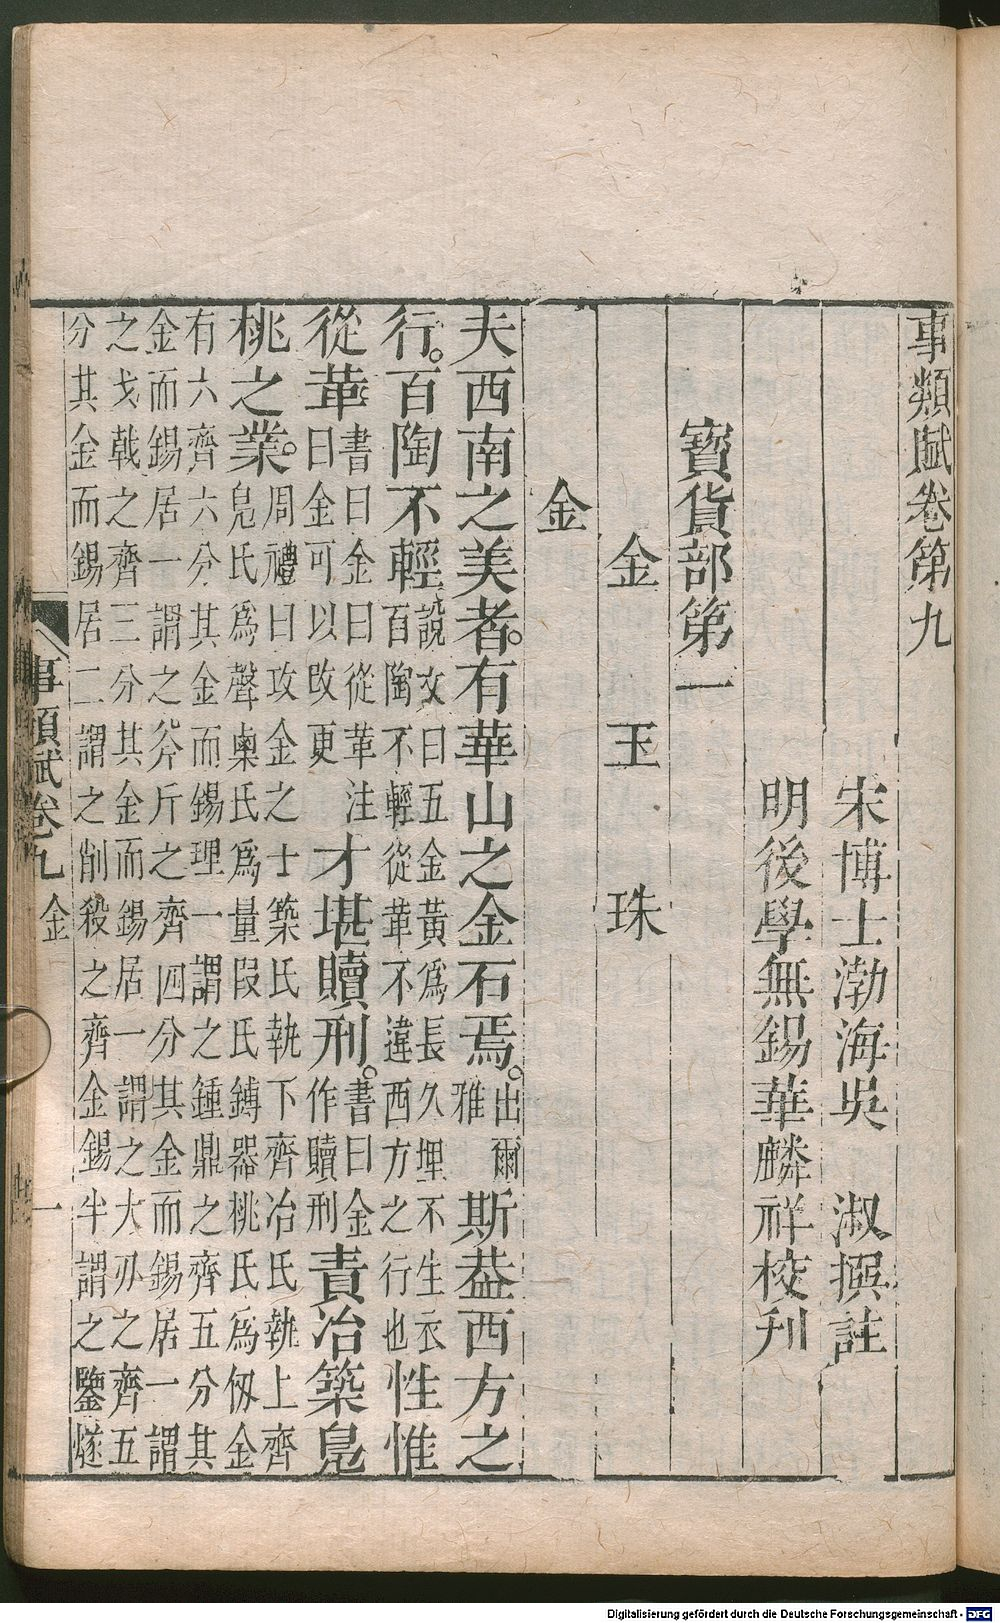 事類賦卷第九
宋博士渤海吳　淑撰註
明後學無錫華麟祥校刋
寶貨部第一
金　玉　珠
金
夫西南之美者。有華山之金石焉。出爾雅斯葢西方之
行。百陶不輕說文曰五金黃爲長久埋不生衣百陶不輕從革不違西方之行也性惟
從革書曰金曰從革注曰金可以改更才堪贖刑。書曰金作贖刑責冶築鳬
桃之業。周禮曰攻金之士築氏執下齊冶氏執上齊鳬氏爲聲㮚氏爲量段氏鎛器桃氏爲刃金
有六齊六分其金而錫理一謂之鍾鼎之齊五分其金而錫居一謂之斧斤之齊四分其金而錫居一謂
之戈戟之齊三分其金而錫居一謂之大刃之齊五分其金而錫居二謂之削殺之齊金錫半謂之鑒燧
事類賦卷九　金　一
Digitalisierung gefördert durch die Deutsche Forschungsgemeinschaft - DFG